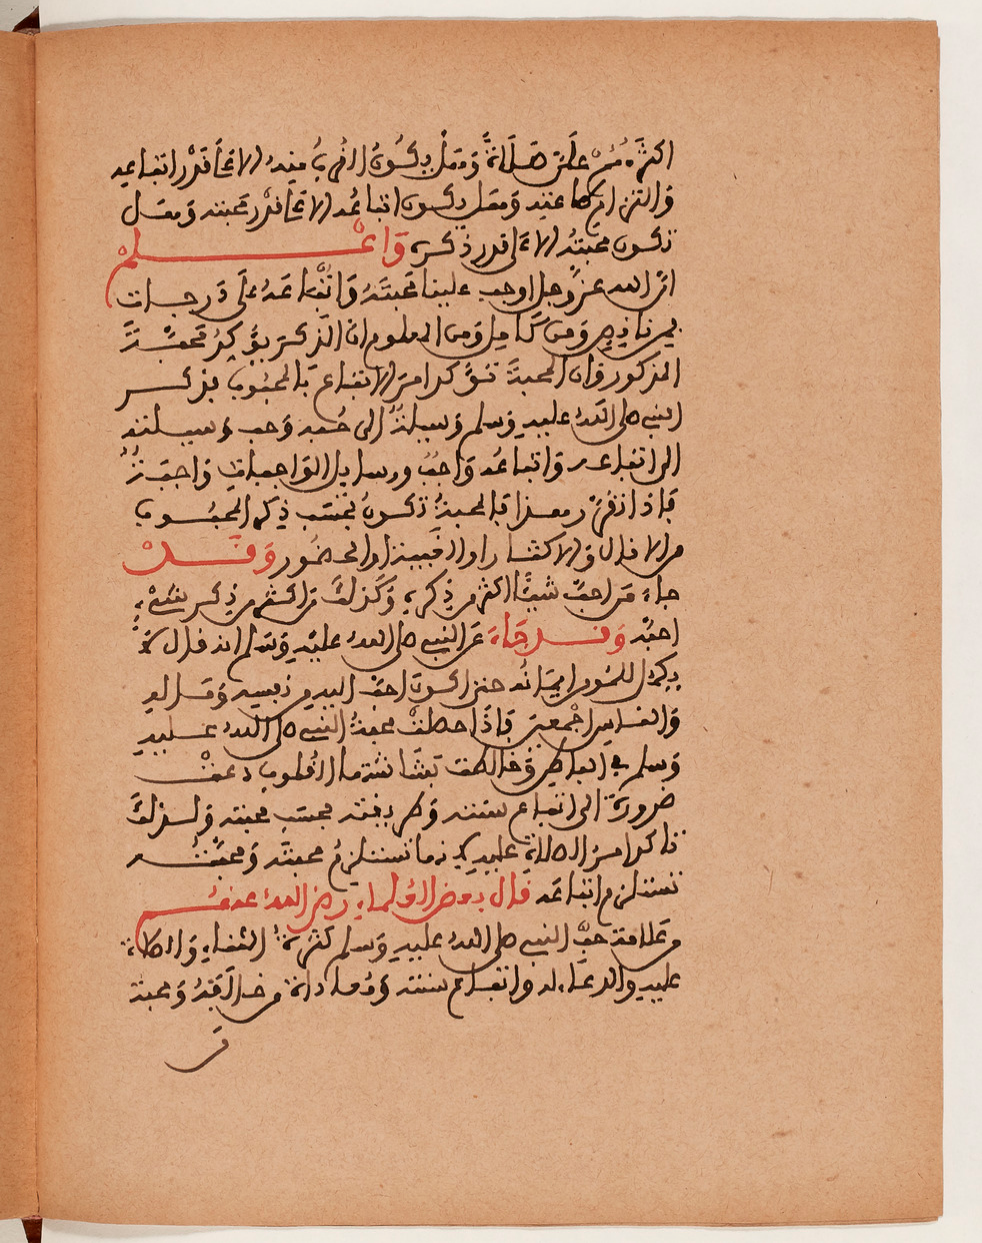 اكثرهم على صلاة وهل يكون القرب منه الا على قدر اتباعه
والتزام طاعته وهل يكون اتباعه الا على قدر محبته وهل
تكون محبته الا على قدر ذكره واعلم
ان الله عز وجل اوجب علينا محبته واتباعه على درجات
من ناقص ومن كامل ومن المعلوم ان الذكر يؤكد محبة
المذكور وان المحبة تؤكد امر الاتباع بالمحبوب بذكر
النبي صلى الله عليه وسلم وسيلة الى حبه وحب وسيلته
الى اتباعه واتباعه واجب ووسايل الواجبات واجبة
فاذا تقرر هذا فالمحبة تكون بحسب ذكر المحبوب
من الاقلال والاكثار او الغيبة او الحضور وقد
جاء من احب شيئا اكثر من ذكره وكذلك من اكثر من ذكر شيء
احبه وقد جاء عن النبي صلى الله عليه وسلم انه قال لا
يكمل للمؤمن ايمانه حتى اكون احب اليه من نفسه وماله
والناس اجمعين فاذا حصلت محبة النبي صلى الله عليه
وسلم في الباطن وخالطت بشاشتها القلوب دعت
ضرورة الى اتباع سنته وطريقته بحسب محبته ولذلك
تاكد امر الصلاة عليه لانها تستلزم محبته ومحبته
تستلزم اتباعه قال بعض العلماء رضي الله عنهم
من علامة حب النبي صلى الله عليه وسلم كثرة الثناء والصلاة
عليه والدعاء له واتباع سنته ومعاداة من خالفه ومحبة